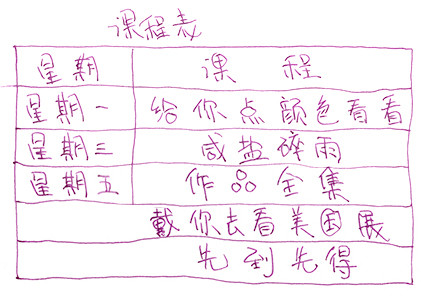 课程表
星期 课程
星期一 给你点颜色看看
星期三 咸盐碎雨
星期五 作品全集
戴你去看美国展
先到先得